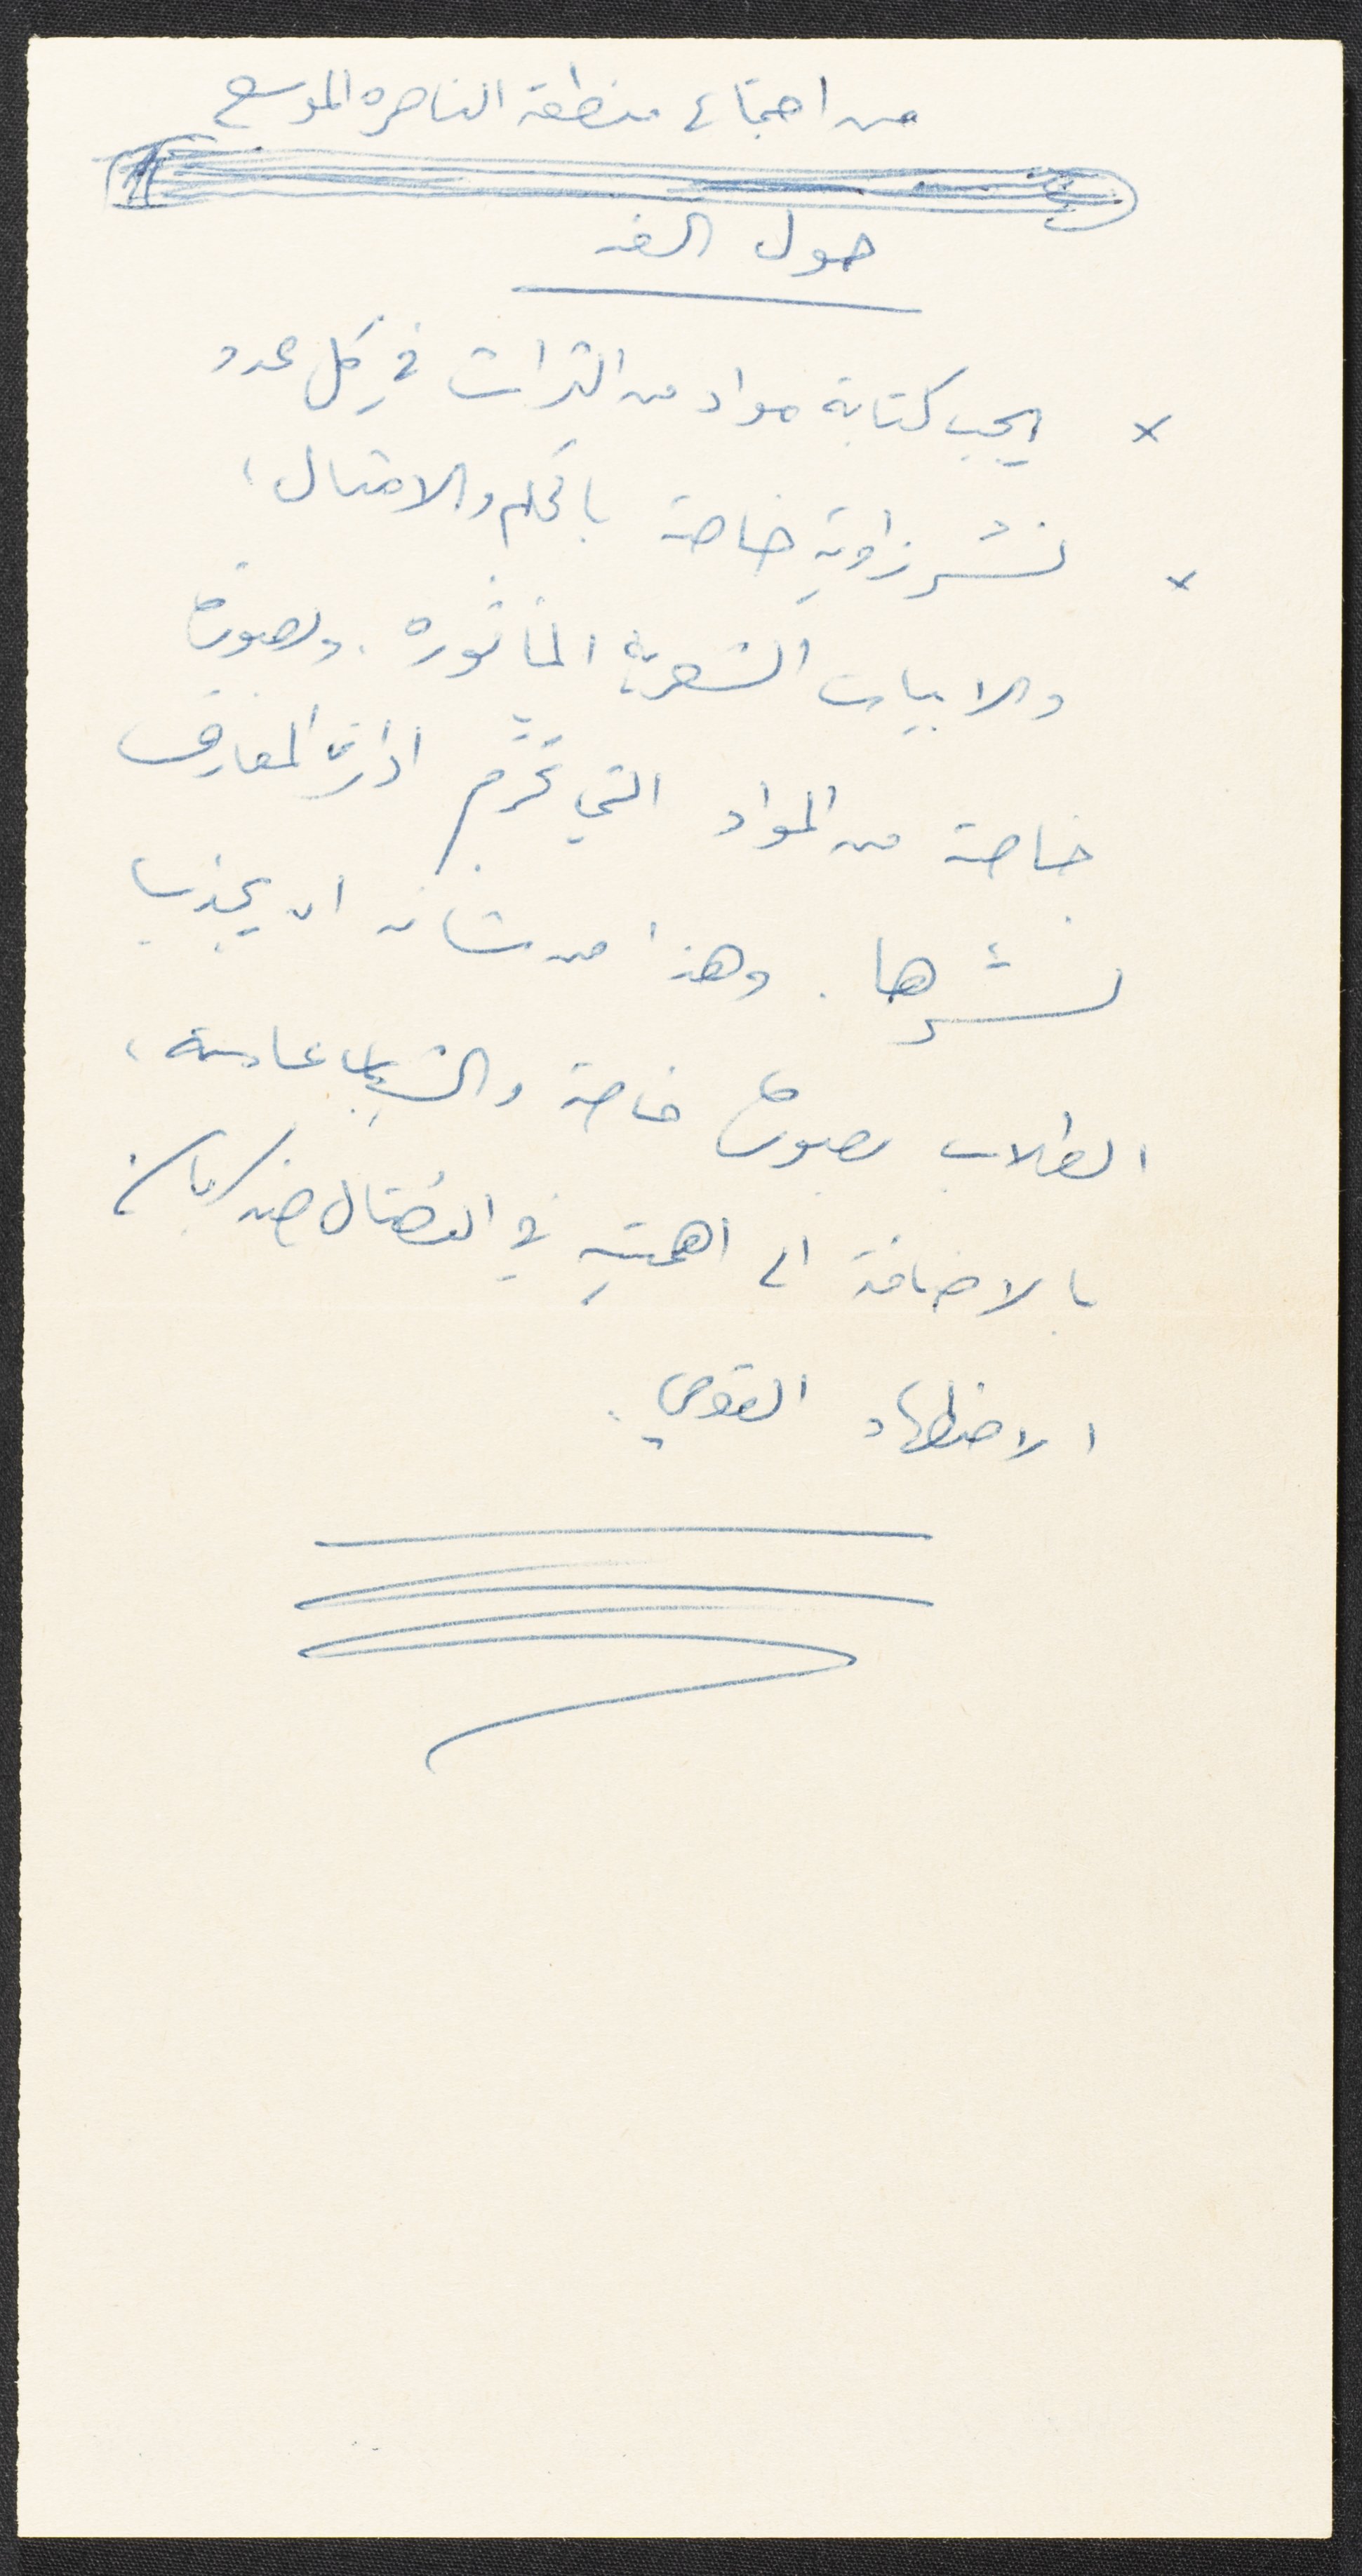 من اجتماع منطقة الناصره الموسع
حول الغد
x يجب كتابة مواد من التراث في كل عدد
x نشر زاوية خاصة بالحكم والامثال،
والابيات الشعرية المأثوره. وبصورة
خاصة من المواد التي تحرّم ادارة المعارف
نشرها. وهذا من شأنه ان يجذب
الطلاب بصورة خاصة والشباب عامة،
بالاضافة الى اهميته في النضال ضد
الاضطهاد القومي.